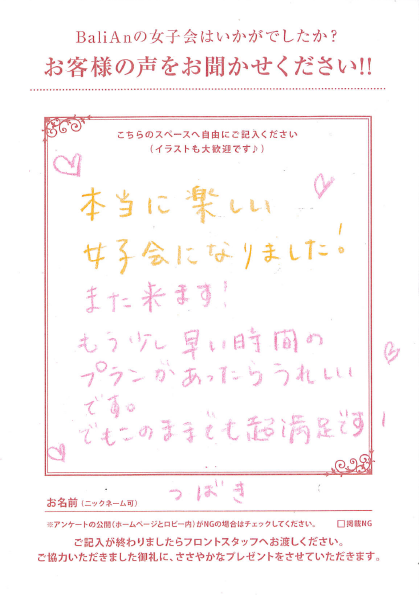 BaliAnの女子会はいかがでしたか？
お客様の声をお聞かせください!!
こちらのスペースへ自由にご記入ください
（イラストも大歓迎です♪）
本当に楽しい
女子会になりました！
また来ます！
もう少し早い時間の
プランがあったらうれしい
です。
でもこのままでも超満足です！
お名前（ニックネーム可） つばき
※アンケートの公開（ホームページとロビー内）がNGの場合はチェックしてください。 □掲載NG
ご記入が終わりましたらフロントスタッフへお渡しください。
ご協力いただきました御礼に、ささやかなプレゼントをさせていただきます。